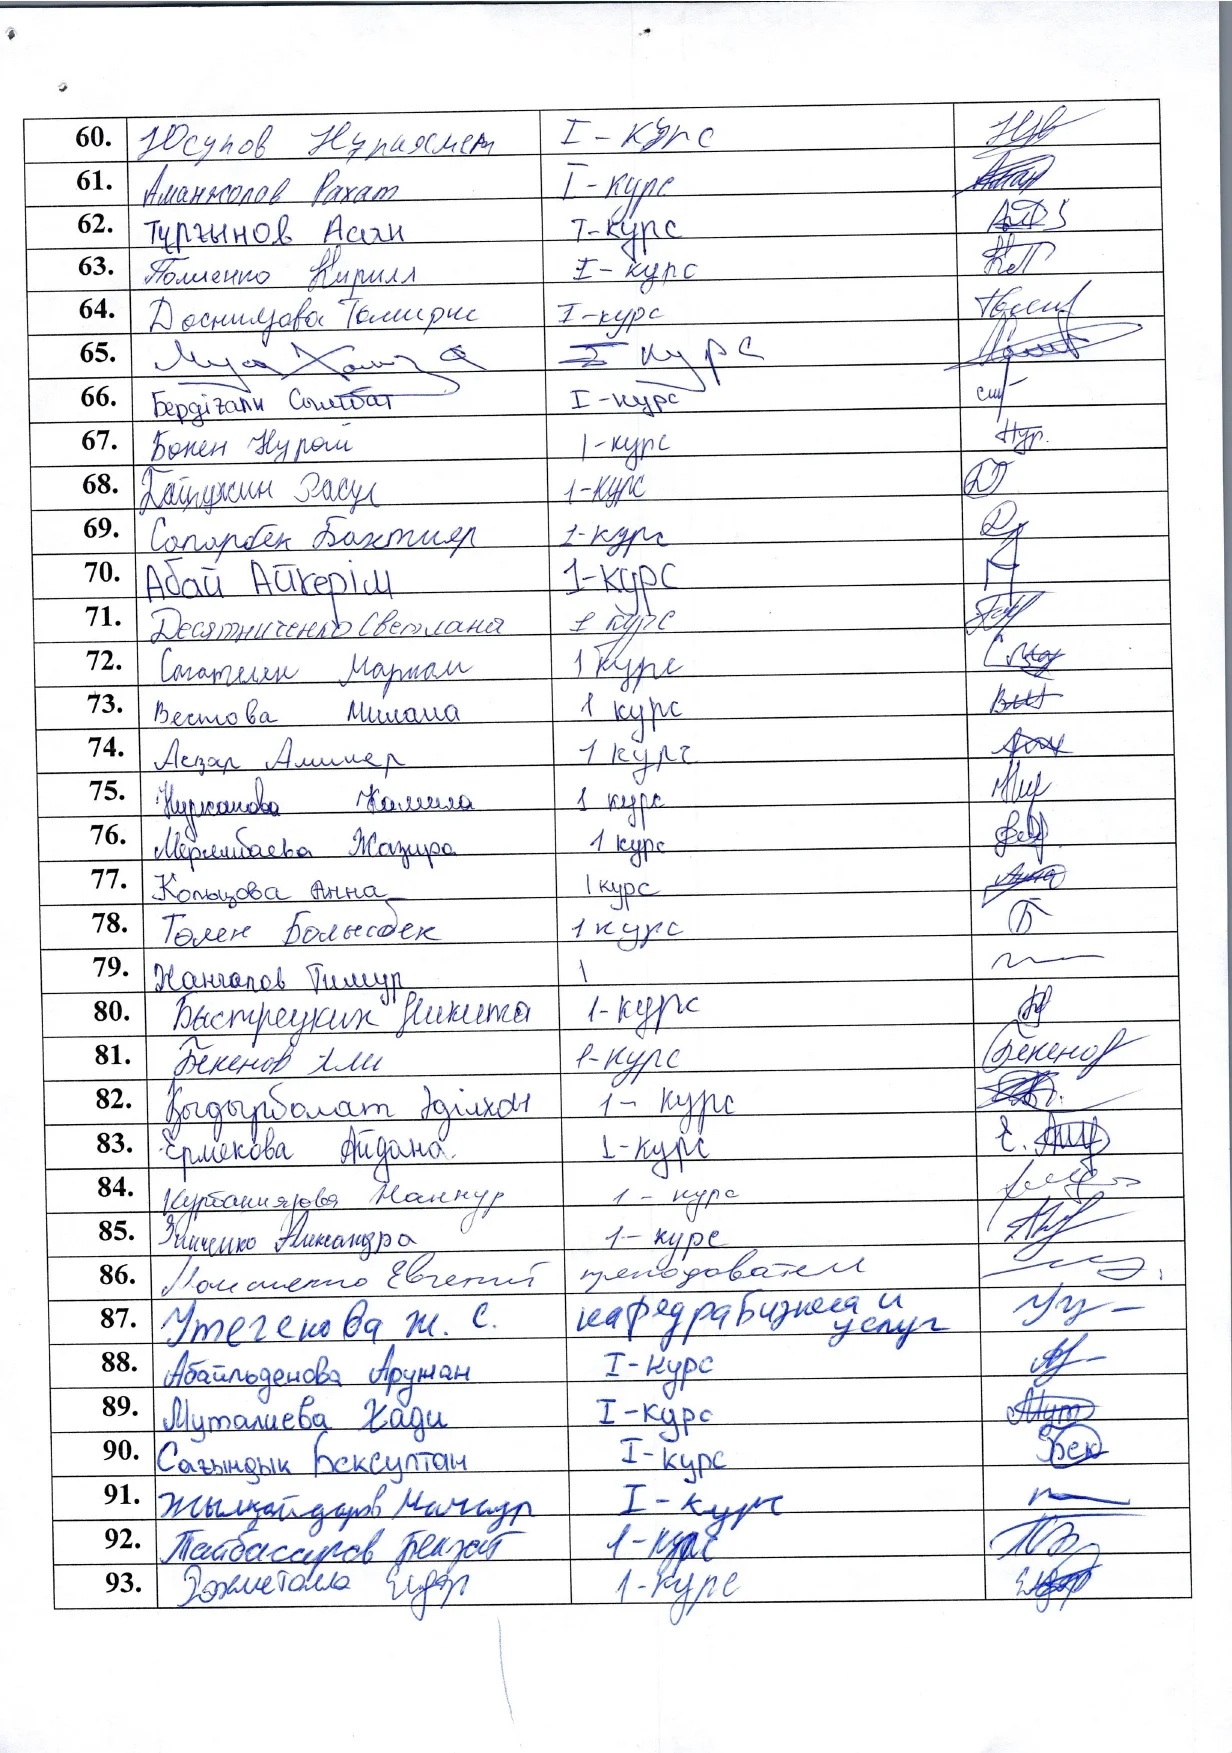 60. Юсупов Нуриахмет I - курс
61. Аманжолов Рахат I - курс
62. Тұрғынов Асан I-курс
63. Поленко Кирилл I - курс
64. Томирис I-курс
65. Муса Хамза I курс
66. Бердіғали Сымбат I-курс
67. Бокен Нурай 1-курс
68. Расул 1-курс
69. Сапарбек Бахтияр 1-курс
70. Абай Айкерім 1-курс
71. Десятниченко Светлана 1 курс
72. Маржан 1 курс
73. Вестова Милана 1 курс
74. Асқар Амирер 1 курс
75. Нурканова Камила 1 курс
76. Жазира 1 курс
77. Кольцова Анна 1 курс
78. Төлен Болысбек 1 курс
79. Тимур 1
80. Быстрецких Никита 1-курс
81. Бекенов Али 1-курс Бекенов
82. Қыдырболат Әділхан 1- курс
83. Ермекова Айдана. 1-курс
84. Курбаниязова 1 - курс
85. 1- курс
86. Евгений преподаватель
87. Утегенова Ж. С. кафедра бизнеса и
услуг
88. Абайльденова Аружан I-курс
89. Муталиева Хади I-курс
90. Сағындық Бексұлтан I-курс
91. Жылқайдаров I - курс
92. Тайбасаров Бекзат 1-курс
93. 1-курс